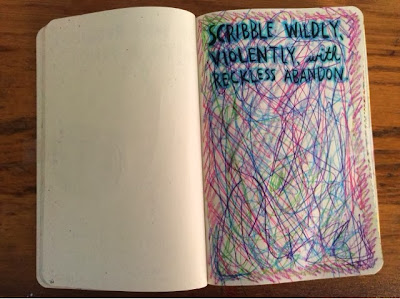 SCRIBBLE WILDLY,
VIOLENTLY, with
RECKLESS ABANDON.